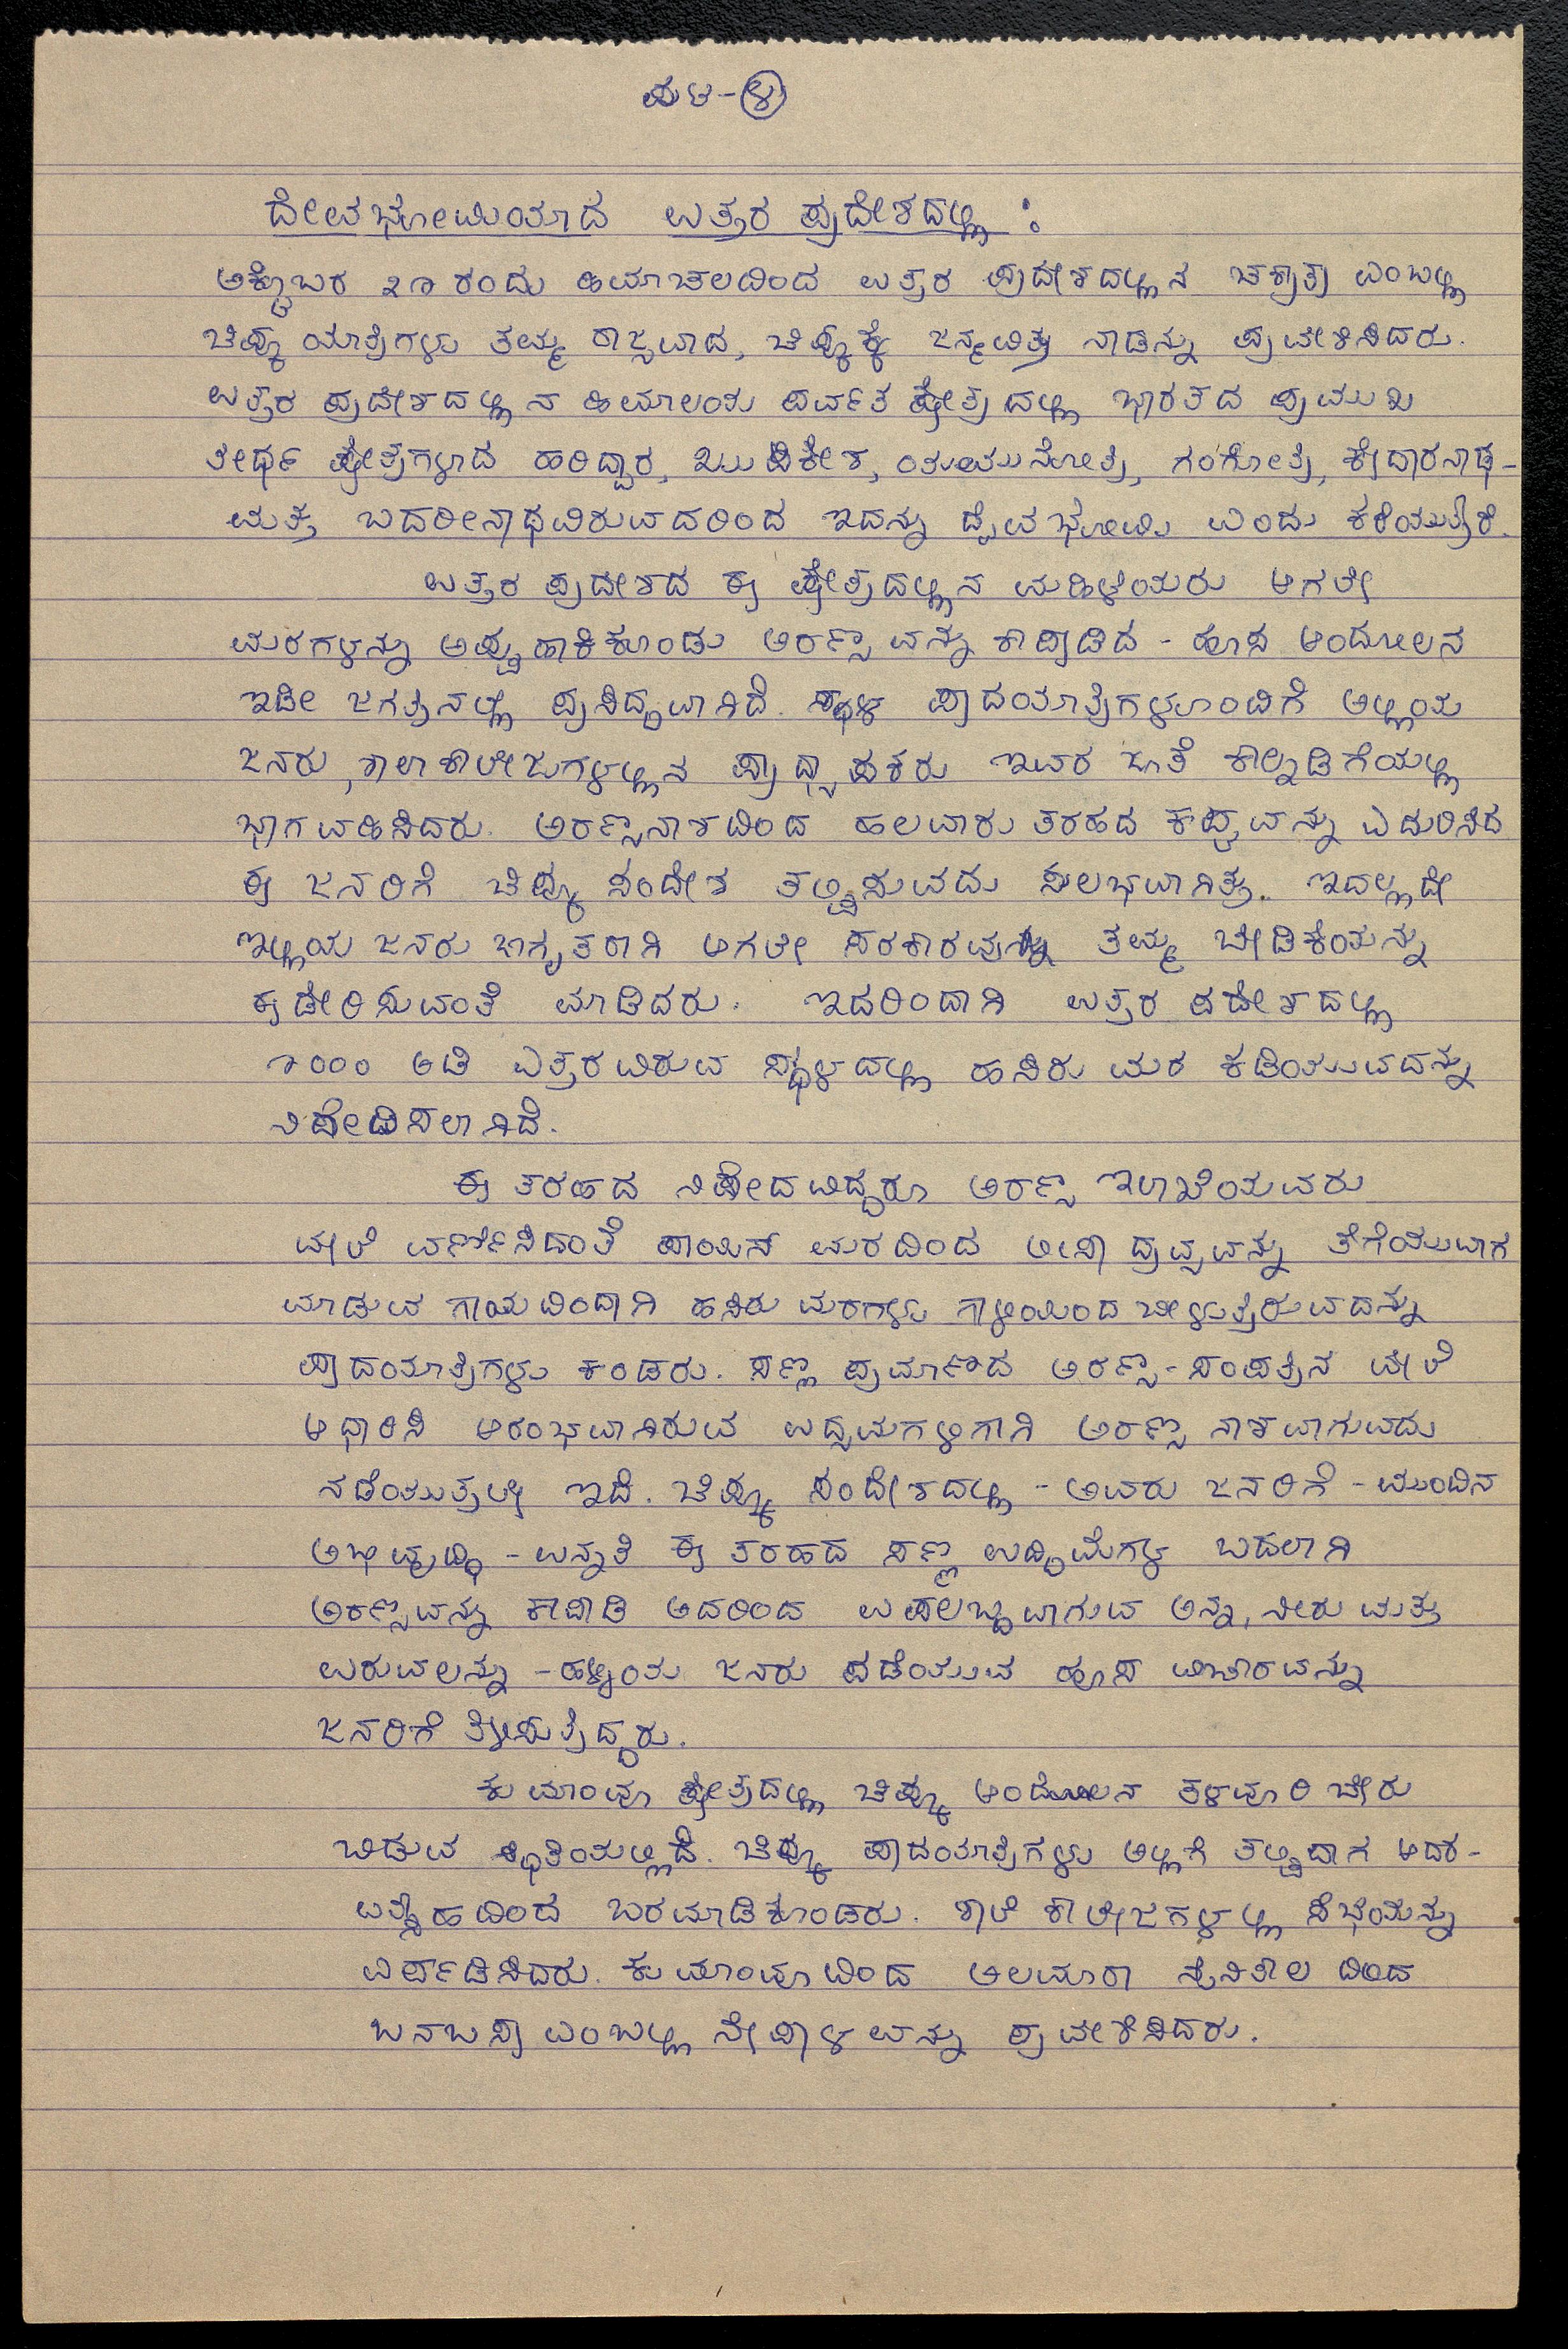 ಪುಟ-೪
ದೇವಭೂಮಿಯಾದ ಉತ್ತರ ಪ್ರದೇಶದಲ್ಲಿ :
ಅಕ್ಟೋಬರ ೩೧ ರಂದು ಹಿಮಾಚಲದಿಂದ ಉತ್ತರ ಪ್ರದೇಶದಲ್ಲಿನ ಚಕ್ರಾತ್ರಾ ಎಂಬಲ್ಲಿ
ಚಿಪ್ಕೊ ಯಾತ್ರಿಗಳು ತಮ್ಮ ರಾಜ್ಯವಾದ, ಚಿಪ್ಕೊಕ್ಕೆ ಜನ್ಮವಿತ್ತ ನಾಡನ್ನು ಪ್ರವೇಶಿಸಿದರು.
ಉತ್ತರ ಪ್ರದೇಶದಲ್ಲಿನ ಹಿಮಾಲಯ ಪರ್ವತ ಕ್ಷೇತ್ರದಲ್ಲಿ ಭಾರತದ ಪ್ರಮುಖ
ತೀರ್ಥ ಕ್ಷೇತ್ರಗಳಾದ ಹರಿದ್ವಾರ, ಋಷಿಕೇಶ, ಯಮುನೋತ್ರಿ, ಗಂಗೋತ್ರಿ, ಕೇದಾರನಾಥ-
ಮತ್ತು ಬದರೀನಾಥವಿರುವದರಿಂದ ಇದನ್ನು ದೈವಭೂಮಿ ಎಂದು ಕರೆಯುತ್ತಾರೆ.
ಉತ್ತರ ಪ್ರದೇಶದ ಈ ಕ್ಷೇತ್ರದಲ್ಲಿನ ಮಹಿಳೆಯರು ಆಗಲೇ
ಮರಗಳನ್ನು ಅಪ್ಪಿಹಾಕಿಕೊಂಡು ಅರಣ್ಯವನ್ನು ಕಾಪಾಡಿದ - ಹೊಸ ಆಂದೋಲನ
ಇಡೀ ಜಗತ್ತಿನಲ್ಲಿ ಪ್ರಸಿದ್ಧವಾಗಿದೆ. ಸ್ಥಳ ಪಾದಯಾತ್ರಿಗಳೊಂದಿಗೆ ಅಲ್ಲಿಯ
ಜನರು, ಶಾಲಾ ಕಾಲೇಜುಗಳಲ್ಲಿನ ಪ್ರಾಧ್ಯಾಪಕರು ಇವರ ಜೊತೆ ಕಾಲ್ನಡಿಗೆಯಲ್ಲಿ
ಭಾಗವಹಿಸಿದರು. ಅರಣ್ಯನಾಶದಿಂದ ಹಲವಾರು ತರಹದ ಕಷ್ಟವನ್ನು ಎದುರಿಸಿದ
ಈ ಜನರಿಗೆ ಚಿಪ್ಕೊ ಸಂದೇಶ ತಲ್ಪಿಸುವದು ಸುಲಭವಾಗಿತ್ತು. ಇದಲ್ಲದೇ
ಇಲ್ಲಿಯ ಜನರು ಜಾಗೃತರಾಗಿ ಆಗಲೇ ಸರಕಾರವನ್ನು ತಮ್ಮ ಬೇಡಿಕೆಯನ್ನು
ಈಡೇರಿಸುವಂತೆ ಮಾಡಿದರು. ಇದರಿಂದಾಗಿ ಉತ್ತರ ಪ್ರದೇಶದಲ್ಲಿ
೧೦೦೦ ಅಡಿ ಎತ್ತರವಿರುವ ಸ್ಥಳದಲ್ಲಿ ಹಸಿರು ಮರ ಕಡಿಯುವದನ್ನು
ನಿಷೇಧಿಸಲಾಗಿದೆ.
ಈ ತರಹದ ನಿಷೇದವಿದ್ದರೂ ಅರಣ್ಯ ಇಲಾಖೆಯವರು
ಮೇಲೆ ವರ್ಣಿಸಿದಂತೆ ಪಾಯಿನ್ ಮರದಿಂದ ಲೀಸಾ ದ್ರವ್ಯವನ್ನು ತೆಗೆಯುವಾಗ
ಮಾಡುವ ಗಾಯದಿಂದಾಗಿ ಹಸಿರು ಮರಗಳು ಗಾಳಿಯಿಂದ ಬೀಳುತ್ತಿರುವದನ್ನು
ಪಾದಯಾತ್ರಿಗಳು ಕಂಡರು. ಸಣ್ಣ ಪ್ರಮಾಣದ ಅರಣ್ಯ-ಸಂಪತ್ತಿನ ಮೇಲೆ
ಆಧಾರಿಸಿ ಆರಂಭವಾಗಿರುವ ಉದ್ಯಮಗಳಿಗಾಗಿ ಅರಣ್ಯ ನಾಶವಾಗುವದು
ನಡೆಯುತ್ತಲೇ ಇದೆ. ಚಿಪ್ಕೊ ಸಂದೇಶದಲ್ಲಿ - ಅವರು ಜನರಿಗೆ - ಮುಂದಿನ
ಅಭಿವೃದ್ಧಿ - ಉನ್ನತಿ ಈ ತರಹದ ಸಣ್ಣ ಉದ್ದಿಮೆಗಳ ಬದಲಾಗಿ
ಅರಣ್ಯವನ್ನು ಕಾಪಾಡಿ ಅದರಿಂದ ಉಪಲಬ್ಧವಾಗುವ ಅನ್ನ, ನೀರು ಮತ್ತು
ಉರುವಲನ್ನು - ಹಳ್ಳಿಯ ಜನರು ಪಡೆಯುವ ಹೊಸ ವಿಚಾರವನ್ನು
ಜನರಿಗೆ ತಿಳಿಸುತ್ತಿದ್ದರು.
ಕುಮಾಂವೂ ಕ್ಷೇತ್ರದಲ್ಲಿ ಚಿಪ್ಕೊ ಆಂದೋಲನ ತಳವೂರಿ ಬೇರು
ಬಿಡುವ ಸ್ಥಿತಿಯಲ್ಲಿದೆ. ಚಿಪ್ಕೊ ಪಾದಯಾತ್ರಿಗಳು ಅಲ್ಲಿಗೆ ತಲ್ಪಿದಾಗ ಆದರ-
ಉತ್ಸಾಹದಿಂದ ಬರಮಾಡಿಕೊಂಡರು. ಶಾಲೆ ಕಾಲೇಜಗಳಲ್ಲಿ ಸಭೆಯನ್ನು
ಏರ್ಪಡಿಸಿದರು. ಕುಮಾಂವೂದಿಂದ ಅಲಮೋರಾ ನೈನಿತಾಲ ದಿಂದ
ಬನಬಸಾ ಎಂಬಲ್ಲಿ ನೇಪಾಳವನ್ನು ಪ್ರವೇಶಿಸಿದರು.